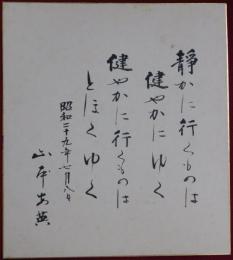 静かに行くものは
健やかに行く
健やかに行くものは
とほくゆく
昭和二十九年七月八日
山岸安英